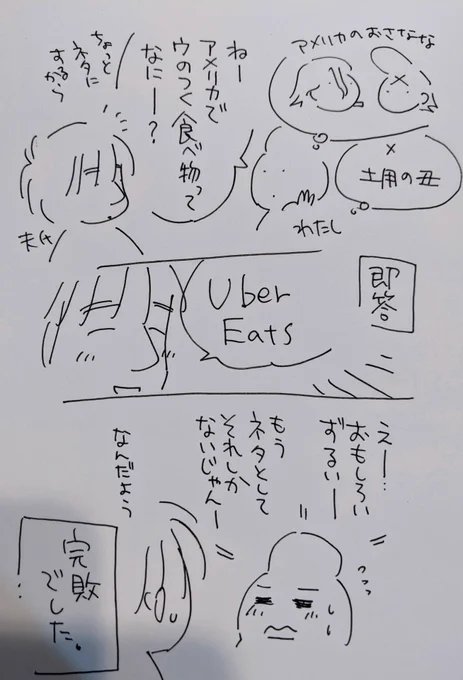 アメリカのおさなな
×
土用の丑
わたし
ねー
アメリカで
ウのつく食べ物って
なにー？
ちょっと
ネタに
するから
夫氏
即答
Uber
Eats
えー…
おもしろい
ずるいー
もう
ネタとして
それしか
ないじゃんー
なんだよう
完敗
でした。